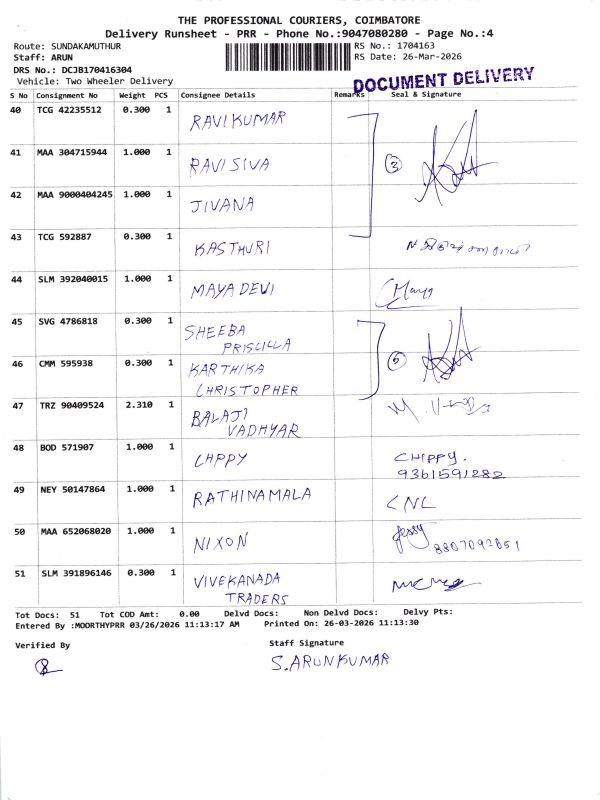 THE PROFESSIONAL COURIERS, COIMBATORE
Delivery Runsheet - PRR - Phone No.:9047080280 - Page No.:4
Route: SUNDAKAMUTHUR RS No.: 1704163
Staff: ARUN RS Date: 26-Mar-2026
DRS No.: DCJB170416304
Vehicle: Two Wheeler Delivery
DOCUMENT DELIVERY
S No Consignment No Weight PCS Consignee Details Remarks Seal & Signature
40 TCG 42235512 0.300 1 RAVIKUMAR
41 MAA 304715944 1.000 1 RAVISIVA
42 MAA 9000404245 1.000 1 JIVANA
43 TCG 592887 0.300 1 KASTHURI
44 SLM 392040015 1.000 1 MAYADEVI Maya
45 SVG 4786818 0.300 1 SHEEBA
PRISCILLA
46 CMM 595938 0.300 1 KARTHIKA
CHRISTOPHER
47 TRZ 90409524 2.310 1 BALAJI
VADHYAR
48 BOD 571907 1.000 1 CHPPY CHIPPY.
9361591282
49 NEY 50147864 1.000 1 RATHINAMALA CNL
50 MAA 652068020 1.000 1 NIXON Jessy
8807092651
51 SLM 391896146 0.300 1 VIVEKANADA
TRADERS
Tot Docs: 51 Tot COD Amt: 0.00 Delvd Docs: Non Delvd Docs: Delvy Pts:
Entered By :MOORTHYPRR 03/26/2026 11:13:17 AM Printed On: 26-03-2026 11:13:30
Verified By Staff Signature
S.ARUNKUMAR